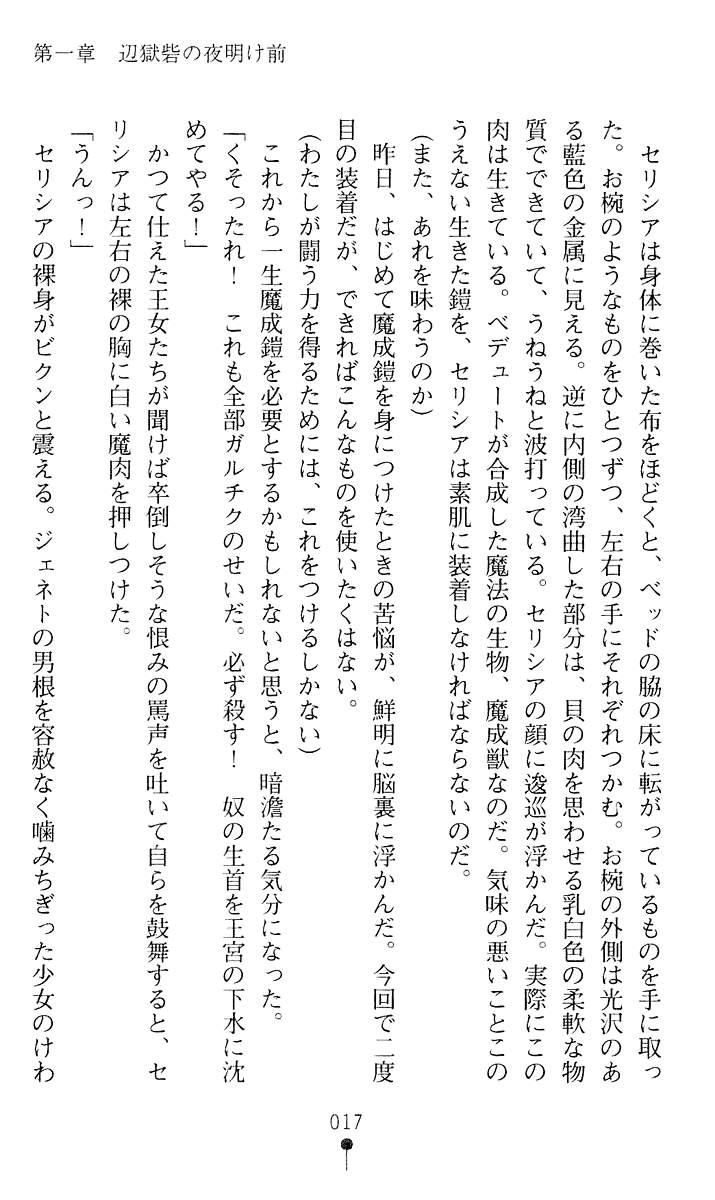 第一章　辺獄砦の夜明け前
セリシアは身体に巻いた布をほどくと、ベッドの脇の床に転がっているものを手に取っ
た。お椀のようなものをひとつずつ、左右の手にそれぞれつかむ。お椀の外側は光沢のあ
る藍色の金属に見える。逆に内側の湾曲した部分は、貝の肉を思わせる乳白色の柔軟な物
質でできていて、うねうねと波打っている。セリシアの顔に逡巡が浮かんだ。実際にこの
肉は生きている。ベデュートが合成した魔法の生物、魔成獣なのだ。気味の悪いことこの
うえない生きた鎧を、セリシアは素肌に装着しなければならないのだ。
（また、あれを味わうのか）
昨日、はじめて魔成鎧を身につけたときの苦悩が、鮮明に脳裏に浮かんだ。今回で二度
目の装着だが、できればこんなものを使いたくはない。
（わたしが闘う力を得るためには、これをつけるしかない）
これから一生魔成鎧を必要とするかもしれないと思うと、暗澹たる気分になった。
「くそったれ！　これも全部ガルチクのせいだ。必ず殺す！　奴の生首を王宮の下水に沈
めてやる！」
かつて仕えた王女たちが聞けば卒倒しそうな恨みの罵声を吐いて自らを鼓舞すると、セ
リシアは左右の裸の胸に白い魔肉を押しつけた。
「うんっ！」
セリシアの裸身がビクンと震える。ジェネトの男根を容赦なく噛みちぎった少女のけわ
017